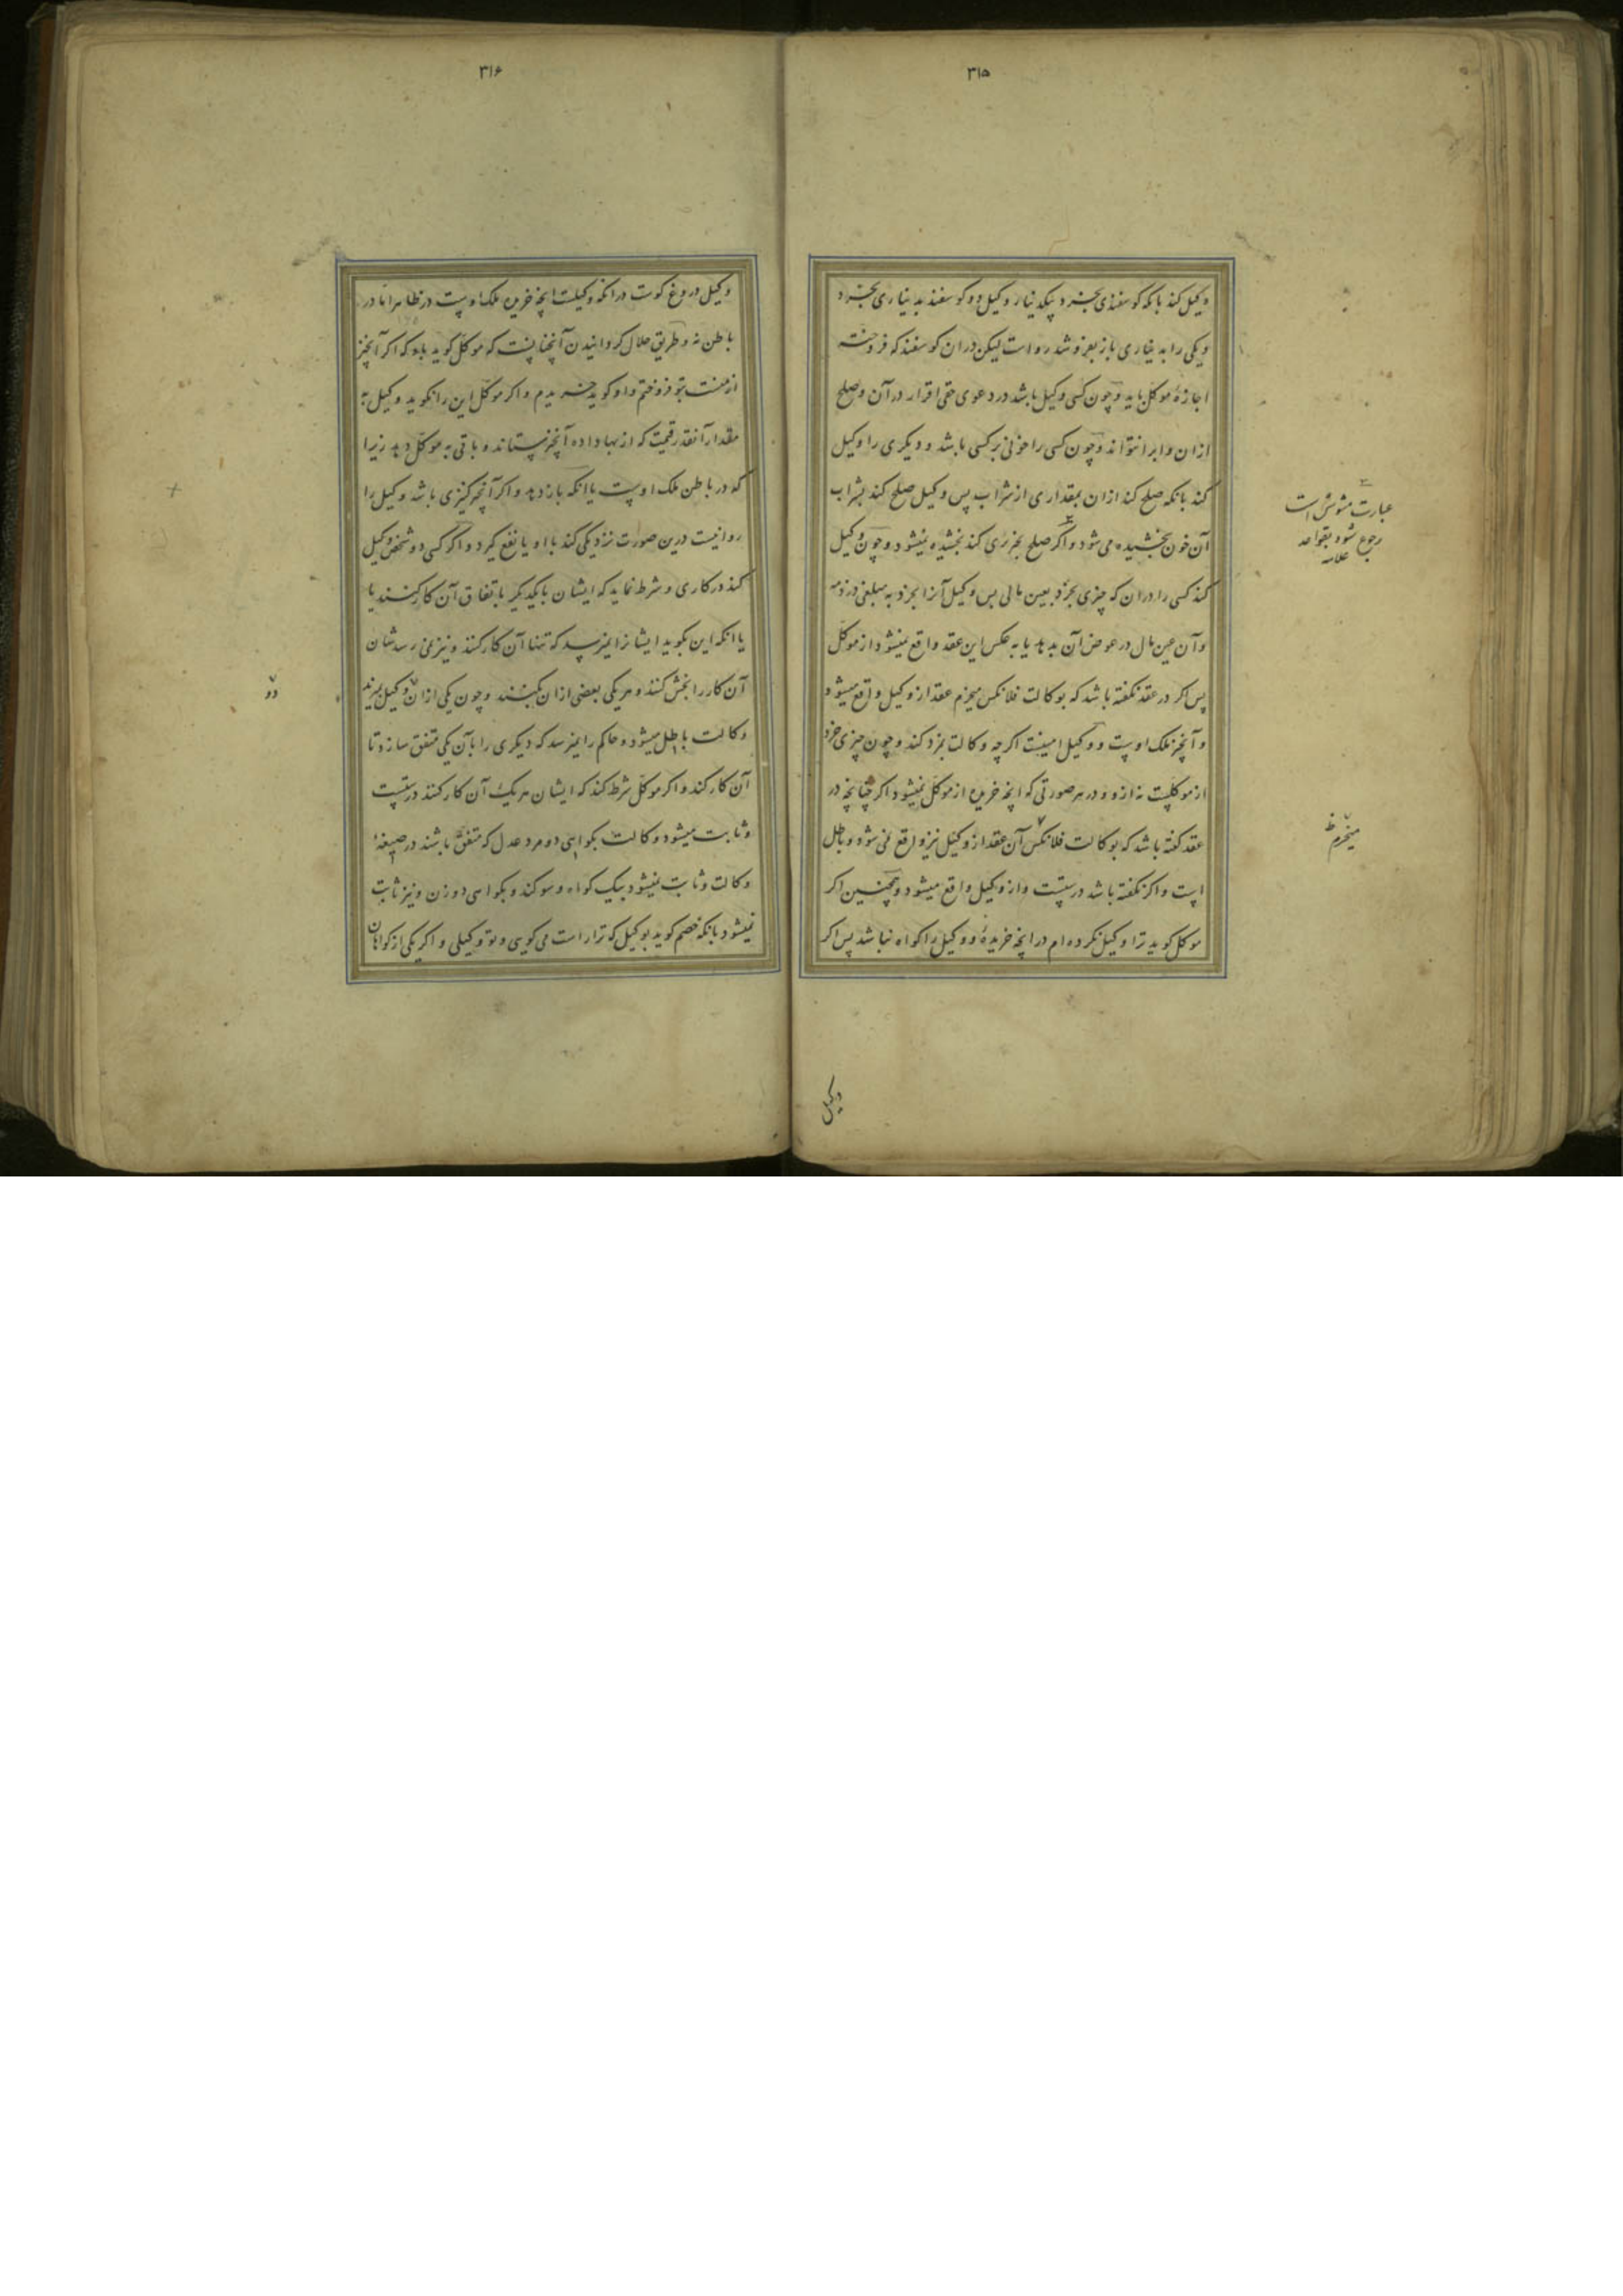 ۳۱۵
وکیل کند بانکه کوسفندی بخرد بیکدینار وکیل دو کوسفند بدیناری بخرد
ویکی را بدیناری باز بفروشد رواست لیکن دران کوسفند که فروخته
اجازهٔ موکل باید وچون کسی وکیل باشد در دعوی حقی اقرار در آن وصلح
ازان وابرا نتواند وچون کسی را خونی بر کسی باشد و دیکری را وکیل
کند بانکه صلح کند ازان بمقداری از شراب پس وکیل صلح کند بشراب
آن خون بخشیده می شود واکر صلح بخنزیری کند بخشیده نمیشود وچون وکیل
کند کسی را دران که چیزی بخرد بعین مالی پس وکیل آنرا بخرد به مبلغی در ذمه
وآن عین مال در عوض آن بدهد یا به عکس این عقد واقع نمیشود از موکل
پس اکر در عقد نکفته باشد که بوکالت فلانکس میخرم عقد از وکیل واقع میشود
وآنچیز ملک اوست و وکیل امینست اکرچه وکالت بمزد کند وچون چیزی خرد
از موکلست نه ازو و در هر صورتی که آنچه خریده از موکل نمیشود اکر چنانچه در
عقد کفته باشد که بوکالت فلانکس آن عقد از وکیل نیز واقع نمی شود وباطل
است واکر نکفته باشد درستست واز وکیل واقع میشود وهمچنین اکر
موکل کوید ترا وکیل نکرده ام در آنچه خریدهٔ و وکیل را کواه نباشد پس اکر
وکیل
عبارت مشوش است
رجوع شود بقواعد
علامه
میخرم ظ
۳۱۶
وکیل دروغ کوست درانکه وکیلست آنچه خریده ملک اوست در ظاهر اما در
باطن نه وطریق حلال کردانیدن آنچنانست که موکل کوید باو که اکر آنچیز
از منست بتو فروختم واو کوید خریدم واکر موکل این را نکوید وکیل به
مقدار آنقدر قیمت که از بها داده آنچیز بستاند وباقی به موکل دهد زیرا
که در باطن ملک اوست یا انکه باز دهد واکر آنچیز کنیزی باشد وکیل را
روا نیست درین صورت نزدیکی کند با او یا نفع کیرد واکر کسی دو شخص وکیل
کند در کاری وشرط نماید که ایشان با یکدیکر باتفاق آن کار کنند یا
یا انکه این نکوید ایشانرا نمیرسد که تنها آن کار کنند ونیز نمی رسدشان
آن کار را بخش کنند وهر یکی بعضی ازان بکنند وچون یکی ازان وکیل بمیرند
وکالت باطل میشود وحاکم را نمیرسد که دیکری را بآن یکی متفق سازد تا
آن کار کند واکر موکل شرط کند که ایشان هر یک آن کار کنند درستست
وثابت میشود وکالت بکواهی دو مرد عدل که متفق باشند در صیغهٔ
وکالت وثابت نمیشود بیک کواه وسوکند وبکواهی دو زن ونیز ثابت
نمیشود بانکه خصم کوید بوکیل که ترا راست می کویی وتو وکیلی واکر یکی از کواهان
دو